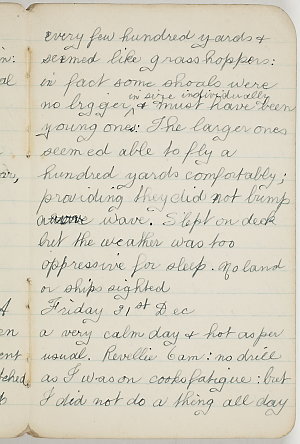 every few hundred yards &
seemed like grasshoppers:
in fact some shoals were
in size individually
no bigger, & must have been
young ones. The larger ones
seemed able to fly a
hundred yards comfortably;
providing they did not bump
a wave. Slept on deck
but the weather was too
oppressive for sleep. No land
or ships sighted
Friday 31st Dec
a very calm day & hot as per
usual. Revellie 6am: no drill
as I was on cooks fatigue: but
I did not do a thing all day